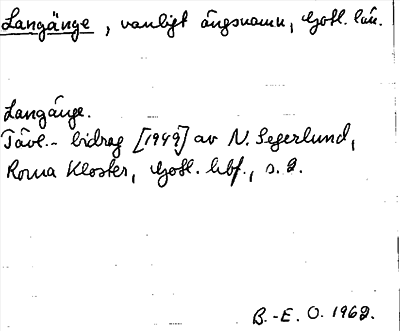 Langänge, vanligt ängsnamn, Gotl. län.
Langänge.
Tävl.- bidrag [1949] av N. Segerlund,
Roma Kloster, Gotl. hbf., s. 2.
B.-E. O. 1962.